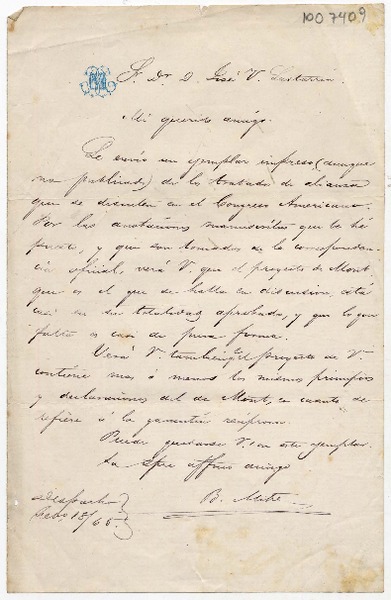 1007409
S. Dr. D. José V. Lastarria.
Mi querido amigo.
Le envio un ejemplar impreso (aunque
no publicado) de los tratados de alianza
que se discuten en el Congreso Americano.
Por las anotaciones manuscritas que le hé
puesto, y que son tomadas de la corresponden-
cia oficial, verá V. que el proyecto de Mont,
que es el que se halla en discusion, está
casi en su totalidad aprobado, y que lo que
falta es casi de pura forma.
Verá V. tambien que el proyecto de V.
contiene mas ó menos los mismos principios
y declaraciones del de Mont, en cuanto se
refiere á la garantía reciproca.
Puede quedarse V. con este ejemplar.
Su affmo amigo
B. Mitre
Despacho
Feb. 18/65.